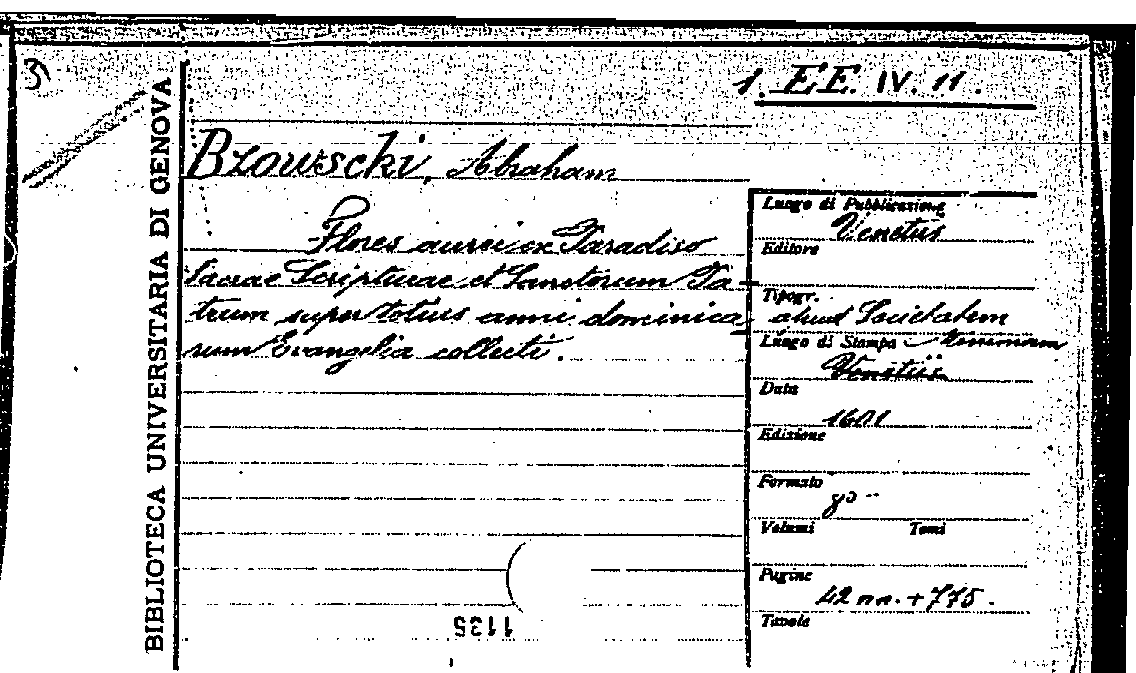 1. EE. IV. 11.
BIBLIOTECA UNIVERSITARIA DI GENOVA
Bzowscki, Abraham
Flores aurei ex Paradiso
Sacrae Scripturae et Sanctorum Pa-
trum super totius anni dominica-
rum Evangelia collecti.
Luogo di Pubblicazione
Venetus
Editore
Tipogr.
apud Societatem
Minimam
Luogo di Stampa
Venetiis
Data
1601
Edizione
Formato
8º
Volumi Tomi
Pagine
42 nn. + 775.
Tavole
1135